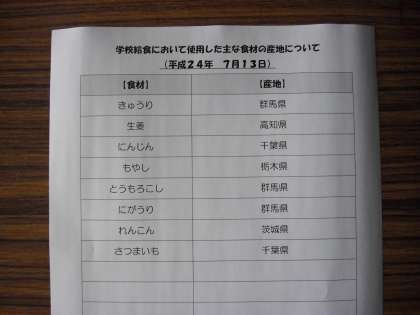 学校給食において使用した主な食材の産地について
（平成２４年　７月１３日）
【食材】 【産地】
きゅうり 群馬県
生姜 高知県
にんじん 千葉県
もやし 栃木県
とうもろこし 群馬県
にがうり 群馬県
れんこん 茨城県
さつまいも 千葉県